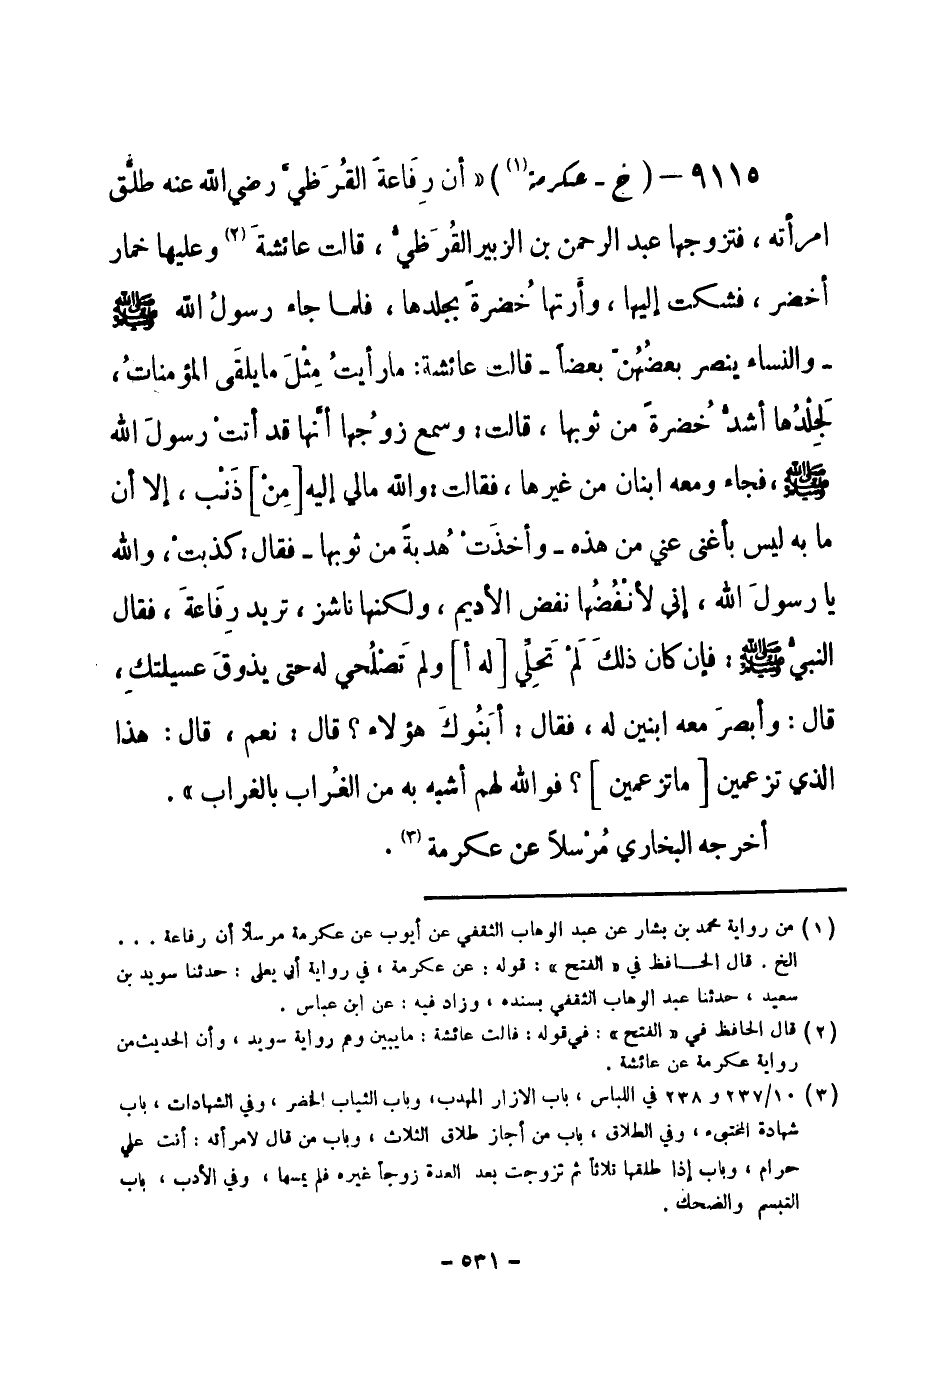 ٩١١٥ – ( خ ـ عكرمة (١) ) « أن رِفَاعةَ القُرَظيَّ رضي الله عنه طلَّق
امرأته ، فتزوجها عبد الرحمن بن الزبير القُرَظيُّ ، قالت عائشةَ (٢) وعليها خمار
أخضر ، فشكت إليها ، وأَرتها خُضرةً بجلدها ، فلمـا جاء رسولُ الله ﷺ
ـ والنساء ينصر بعضُهُنَّ بعضاً ـ قالت عائشة : ما رأيتُ مِثْلَ ما يلقَى المؤمناتُ ،
لَجِلْدُها أشدُّ خُضرةً من ثوبها ، قالت : وسمع زوجُها أنَّها قد أتتْ رسولَ الله
ﷺ ، فجاء ومعه ابنان من غيرها ، فقالت : والله مالي إليه [ مِنْ ] ذَنْب ، إلا أن
ما به ليس بأغنى عني من هذه ـ وأخذَتْ هُدبةً من ثوبها ـ فقال : كذبتْ ، والله
يا رسولَ الله ، إني لأَنْفُضُها نفض الأديم ، ولكنها ناشز ، تريد رِفَاعةَ ، فقال
النبيُّ ﷺ : فإن كان ذلكَ لَمْ تَحِلِّي [ له أ ] ولم تَصْلُحي له حتى يذوقَ عسيلتكِ ،
قال : وأبصرَ معه ابنين له ، فقال : أبَنُوكَ هؤلاء ؟ قال : نعم ، قال : هذا
الذي تزعمين [ ما تزعمين ] ؟ فوالله لهم أشبه به من الغُراب بالغراب » .
أخرجه البخاري مُرْسلاً عن عكرمة (٣) .
(١) من رواية محمد بن بشار عن عبد الوهاب الثقفي عن أيوب عن عكرمة مرسلاً أن رفاعة . . .
الخ . قال الحـافظ في « الفتح » : قوله : عن عكرمة ، في رواية أبي يعلى : حدثنا سويد بن
سعيد ، حدثنا عبد الوهاب الثقفي بسنده ، وزاد فيه : عن ابن عباس .
(٢) قال الحافظ في « الفتح » : في قوله : قالت عائشة : ما يبين وهم رواية سويد ، وأن الحديث من
رواية عكرمة عن عائشة .
(٣) ٢٣٧/١٠ و ٢٣٨ في اللباس ، باب الازار المهدب ، وباب الثياب الخضر ، وفي الشهادات ، باب
شهادة المختبىء ، وفي الطلاق ، باب من أجاز طلاق الثلاث ، وباب من قال لامرأته : أنت علي
حرام ، وباب إذا طلقها ثلاثاً ثم تزوجت بعد العدة زوجاً غيره فلم يمسها ، وفي الأدب ، باب
التبسم والضحك .
– ٥٣١ –